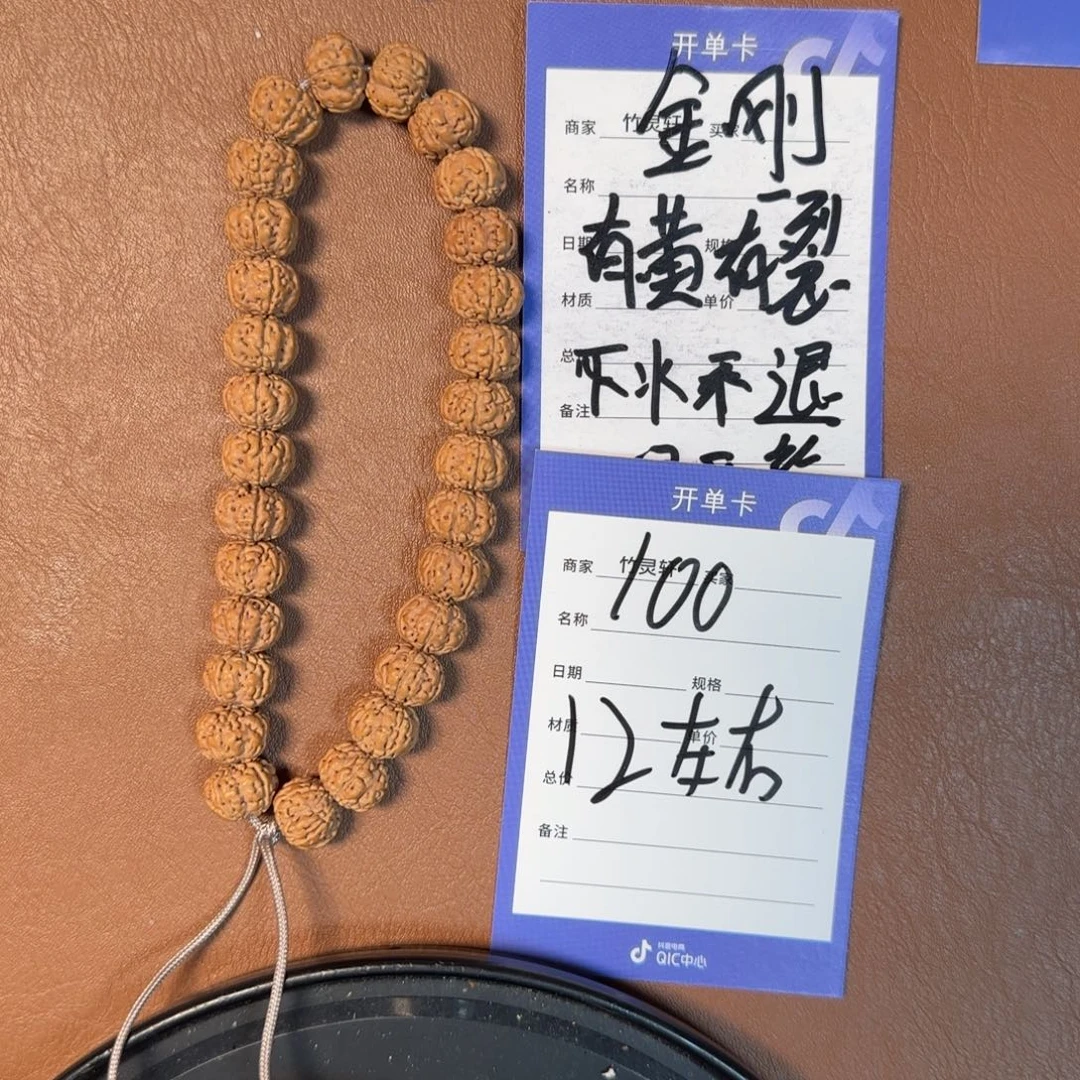 开单卡
金刚
商家 竹灵轩 买家
名称
有黄有裂
日期 规格
材质 单价
下水不退
备注
开单卡
100
商家 竹灵轩 买家
名称
日期 规格
12左右
材质 单价
总价
备注
抖音电商
QIC中心